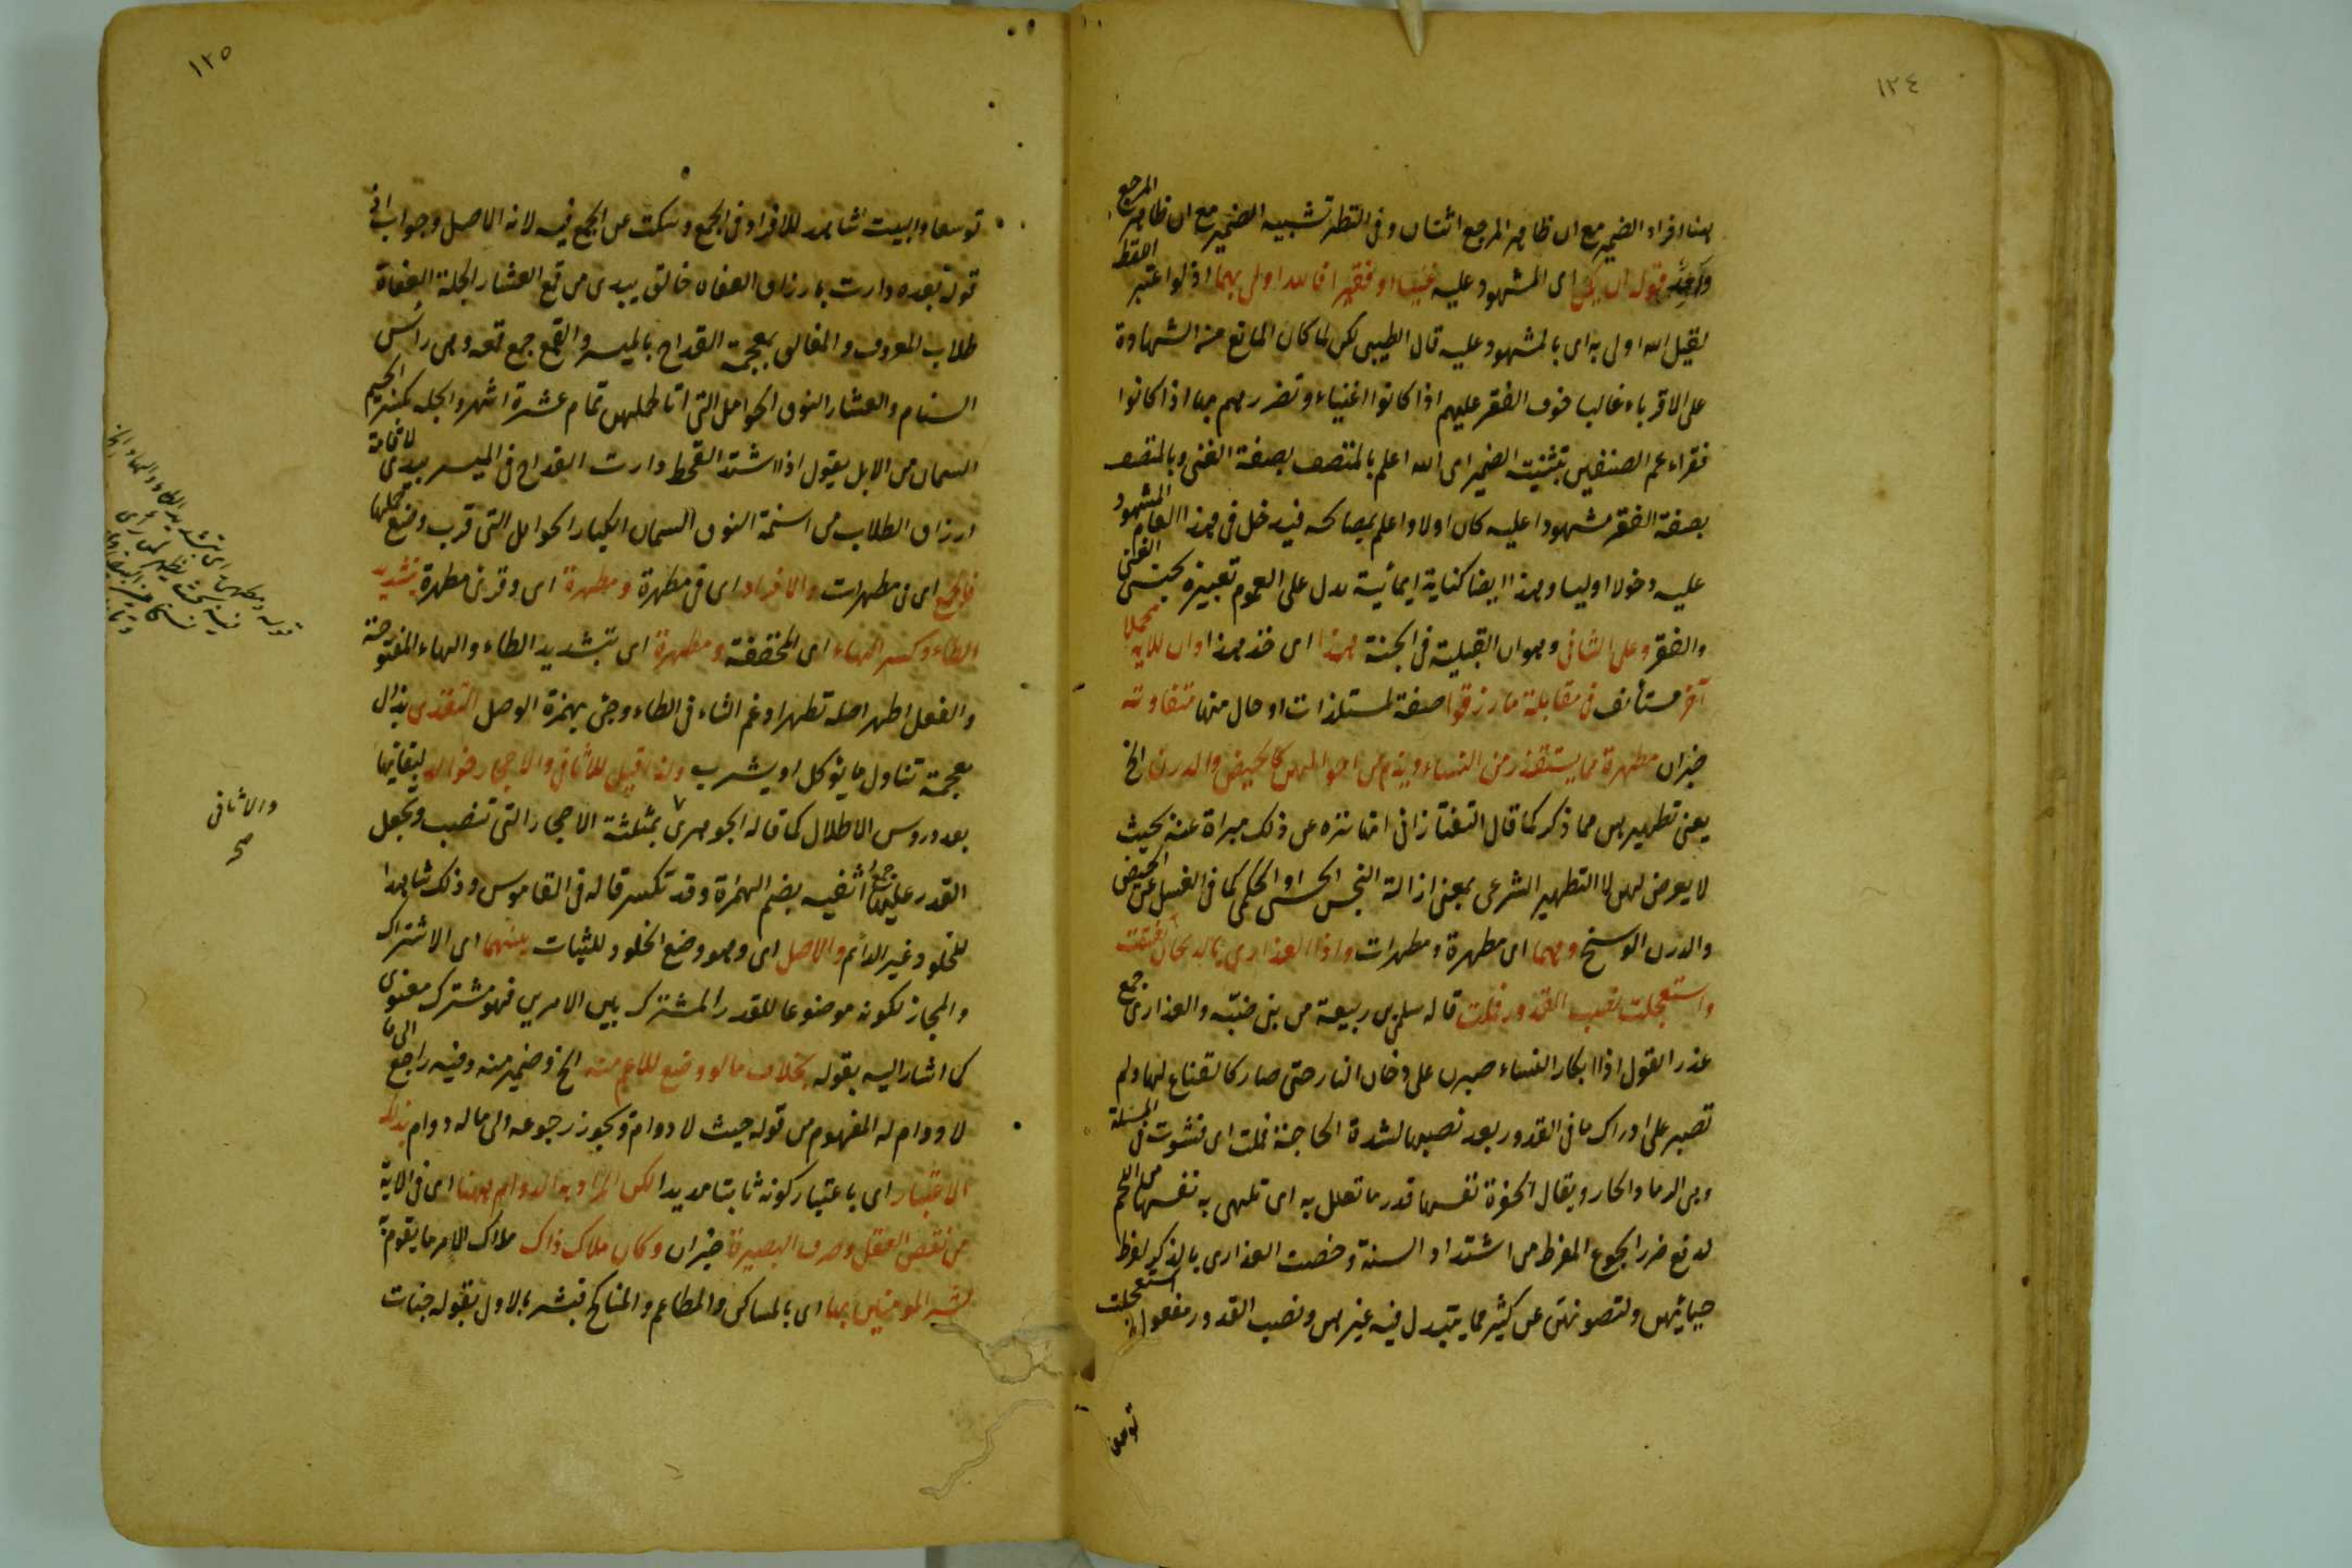 ١٢٤
هنا افراد الضمير مع ان ظاهر المرجع اثنان وفى التنظير تشبيه الضمير مع ان ظاهر المرجع
واحد قوله ان يكن اى المشهود عليه غنيا او فقيرا فالله اولى بهما اذ لو اعتبر اللفظ
لقيل الله اولى به اى بالمشهود عليه قال الطيبى لكن لما كان المانع من الشهادة
على الاقرباء غالبا خوف الفقر عليهم اذا كانوا اغنياء وتضررهم بها اذا كانوا
فقراء عم الصنفين بتثنيت الضمير اى الله اعلم بالمتصف بصفة الغنى وبالمتصف
بصفة الفقر مشهودا عليه كان اولا واعلم بمصالحه فيدخل فى هذا العام المشهود
عليه دخولا اوليا وهذا ايضا كناية ايمائية يدل على العموم تعبيره بجنسى الغنى
والفقر وعلى الثانى وهو ان القبلية فى الجنة هذا اى خذ هذا وان للاية محملا
آخر مستأنف فى مقابلة ما رزقوا صفة لمستلذات او حال منها متفاوتة
خبر ان مطهرة مما يستقذر من النساء ويذم من احوالهن كالحيض والدرن الخ
يعنى تطهيرهن مما ذكر كما قال التفتازانى انها تنزه عن ذلك مبراة عنه بحيث
لا يعرض لهن لا التطهير الشرعى بمعنى ازالة النجس الحسى او الحكمى كما فى الغسل عن الحيض
والدرن الوسخ وهما اى مطهرة ومطهرات واذا العذارى بالدخان تقنعت
واستعجلت نصب القدور فملت قاله سلمى بن ربيعة من بنى ضبّه والعذارى جمع
عذراء يقول اذا ابكار النساء صبرن على دخان النار حتى صار كالقناع لها ولم
تصبر على ادراك ما فى القدور بعد نصبها لشدة الحاجة فملت اى فشوت فى الملة
وهى الرماد الحار ويقال الحفرة نفسها قدر ما تعلل به اى تلهى به نفسها من اللحم
لدفع ضرر الجوع المفرط من اشتداد السنة وخصت العذارى بالذكر لفرط
حيائهن ولتصونهن عن كثير مما يتبدل فيه غيرهن ونصب القدور مفعول استعجلت
توسعا
١٢٥
توسعا والبيت شاهد للافراد فى الجمع وسكت عن الجمع فيه لانه الاصل وجواب اذا
قوله بعده دارت بارزاق العفاه مغالق بيدى من قمع العشار الجلة العفاة
طلاب المعروف والمغالق بمعجمة القداح بالميسر والقمع جمع قمعه وهى رأس
السنام والعشار النوق الحوامل التى اتا لحملهن تمام عشرة اشهر والجله بكسر الجيم
السمان من الابل يقول اذا اشتد القحط دارت القداح فى الميسر بيدى لاقامة
ارزاق الطلاب من اسنمة النوق السمان الكبار الحوامل التى قرب وضع حملها
فالجمع اى فى مطهرات والافراد اى فى مطهرة ومطهرة اى وقرئ مطهرة بتشديد
الطاء وكسر الهاء اى المخففة ومطهرة اى بتشديد الطاء والهاء المفتوحة
والفعل اطهر اصله تطهر ادغم التاء فى الطاء وجئ بهمزة الوصل التغذى بذال
معجمة تناول ما يؤكل او يشرب ولذا قيل للاثافى والاحجار خوالد لبقائها
بعد دروس الاطلال كما قاله الجوهرى بمثلثة الاحجار التى تنصب وتجعل
القدر عليها جمع اثفيه بضم الهمزة وقد تكسر قاله فى القاموس وذلك شاهدا
للخلود غير الدائم والاصل اى وهو وضع الخلود للثبات ينفيهما اى الاشتراك
والمجاز لكونه موضوعا للقدر المشترك بين الامرين فهو مشترك معنوى
كما اشار اليه بقوله بخلاف ما لو وضع للاعم منه الخ وضمير منه وفيه راجع الى ما
لا دوام له المفهوم من قوله حيث لا دوام ويجوز رجوعه الى ما له دوام بذلك
الاعتبار اى باعتبار كونه ثابتا مديدا لكن المراد به الدوام ههنا اى فى الاية
من نقص العقل وضعف البصيرة خبر ان وكان ملاك ذلك ملاك الامر ما يقوم به
بشر المؤمنين بها اى بالمساكن والمطاعم والمناكح فبشر بالاول بقوله جنات
والاثافى
صح